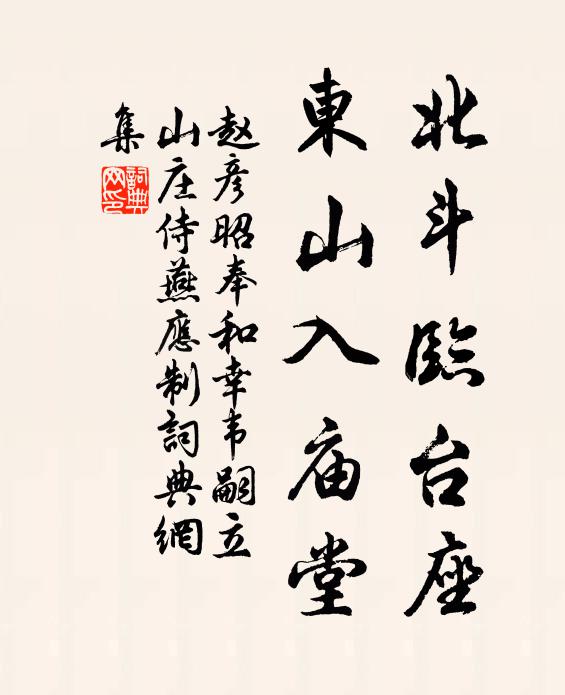 北斗臨台座
東山入庙堂
赵彦昭奉和幸韦嗣立
山庄侍燕應制詞典網
集
詞典
网印